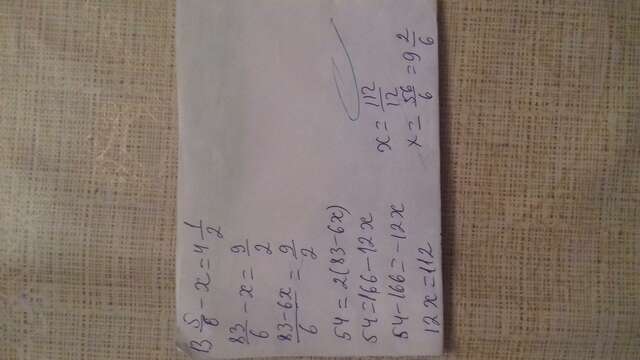 13 5/6 - x = 4 1/2
83/6 - x = 9/2
83-6x/6 = 9/2
54 = 2(83-6x)
54 = 166 - 12x
54 - 166 = -12x
12x = 112
x = 112/12
x = 56/6 = 9 2/6